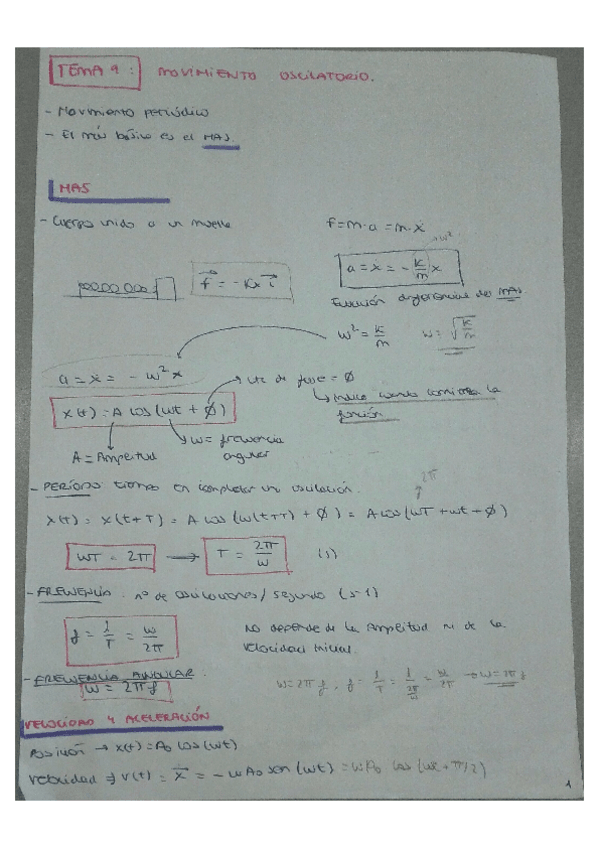 TEMA 9: MOVIMIENTO OSCILATORIO.
- Movimiento periódico
- El más básico es el MAS
MAS
- Cuerpo unido a un muelle
f = m·a = m·ẍ
f = -Kx i
a = ẍ = - k/m x
w²
Ecuación diferencial del MAS
w² = k/m w = √k/m
a = ẍ = - w² x
cte de fase = ∅
x(t) = A cos (wt + ∅)
Indica cuando comienza la función
w = frecuencia angular
A = Amplitud
- PERÍODO tiempo en completar una oscilación.
2π
x(t) = x(t+T) = A cos (w(t+T) + ∅) = A cos (wT + wt + ∅)
wT = 2π → T = 2π/w (s)
- FRECUENCIA: nº de oscilaciones / segundo (s-1)
f = 1/T = w/2π
No depende de la Amplitud ni de la velocidad inicial.
- FRECUENCIA ANGULAR
w = 2π f
w = 2π f, f = 1/T = 1/2π/w = w/2π → w = 2π f
VELOCIDAD Y ACELERACIÓN
Posición → x(t) = A₀ cos (wt)
Velocidad ⇒ v(t) = ẋ = - w A₀ sen (wt) = w A₀ cos (wt + π/2)
1